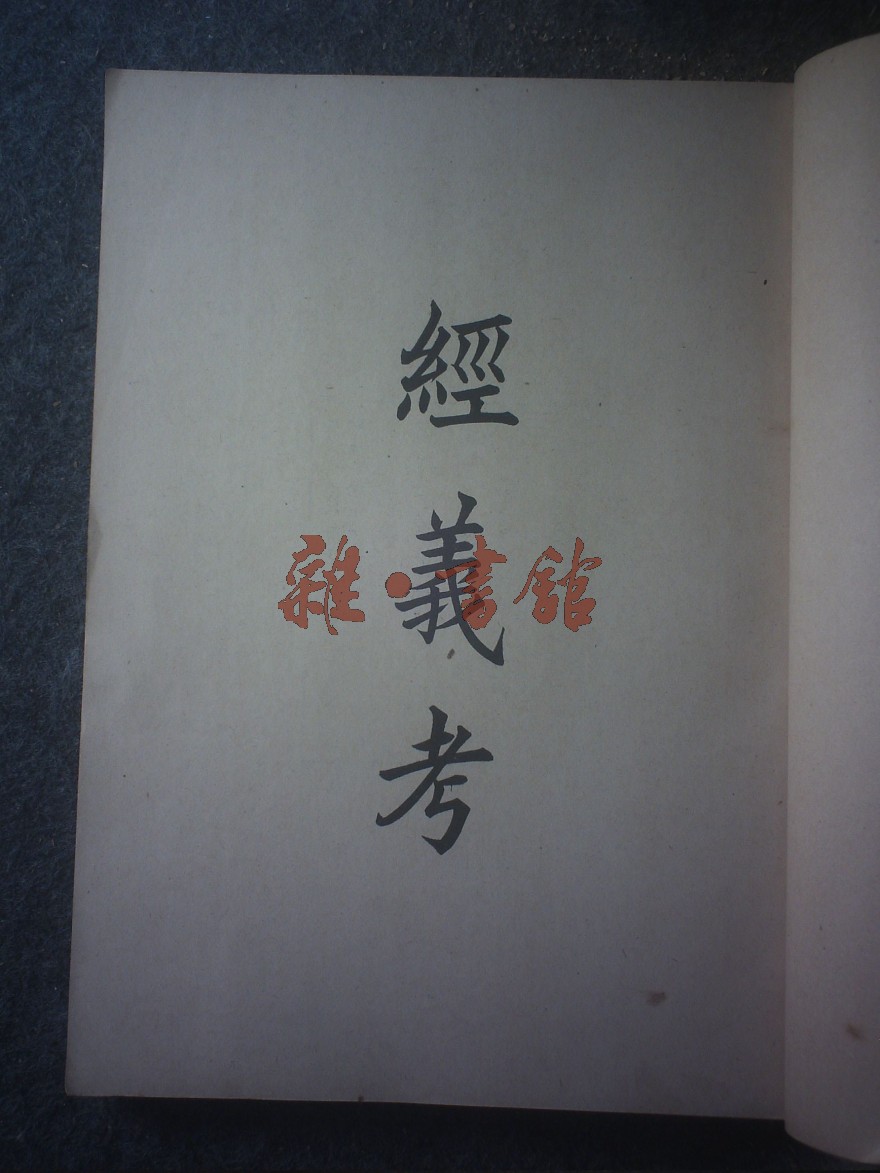 經義考
雜·書館